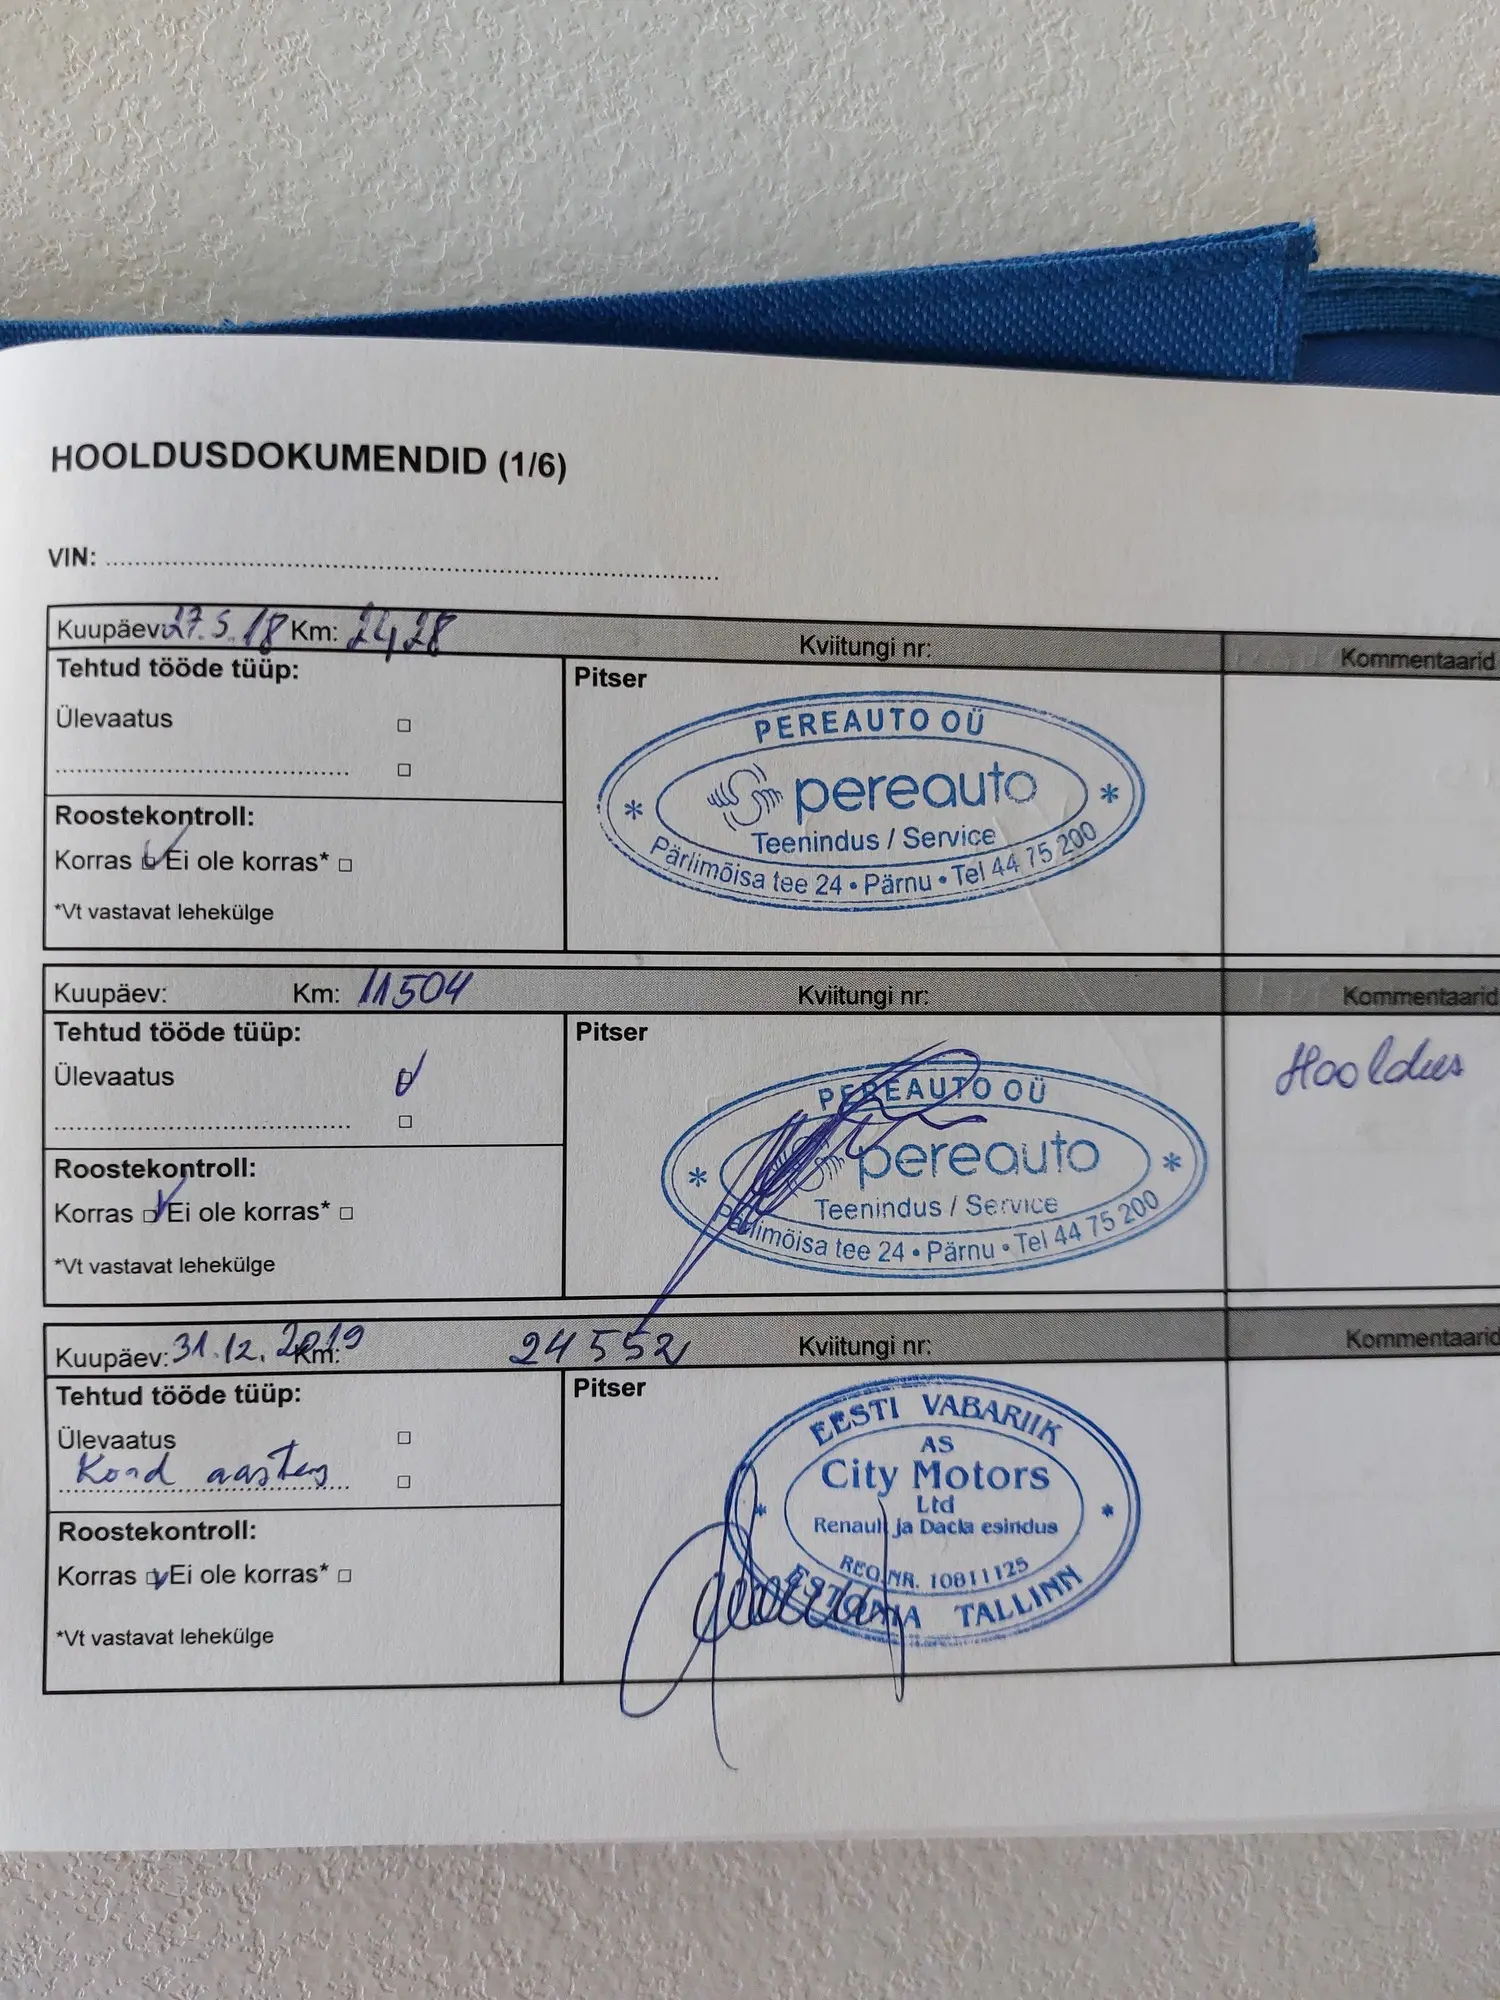 HOOLDUSDOKUMENDID (1/6)
VIN:
Kuupäev: 27.5.18 Km: 2428 Kviitungi nr: Kommentaarid
Tehtud tööde tüüp: Pitser
Ülevaatus
Roostekontroll:
Korras Ei ole korras*
*Vt vastavat lehekülge
PEREAUTO OÜ
pereauto
Teenindus / Service
* Pärlimõisa tee 24 • Pärnu • Tel 44 75 200 *
Kuupäev: Km: 11504 Kviitungi nr: Kommentaarid
Tehtud tööde tüüp: Pitser
Ülevaatus
Roostekontroll:
Korras Ei ole korras*
*Vt vastavat lehekülge
PEREAUTO OÜ
pereauto
Teenindus / Service
* Pärlimõisa tee 24 • Pärnu • Tel 44 75 200 *
Hooldus
Kuupäev: 31.12.2019 Km: 24552 Kviitungi nr: Kommentaarid
Tehtud tööde tüüp: Pitser
Ülevaatus
Kord aastas
Roostekontroll:
Korras Ei ole korras*
*Vt vastavat lehekülge
EESTI VABARIIK
AS
City Motors
Ltd
Renault ja Dacia esindus
REG.NR. 10811125
* ESTONIA TALLINN *